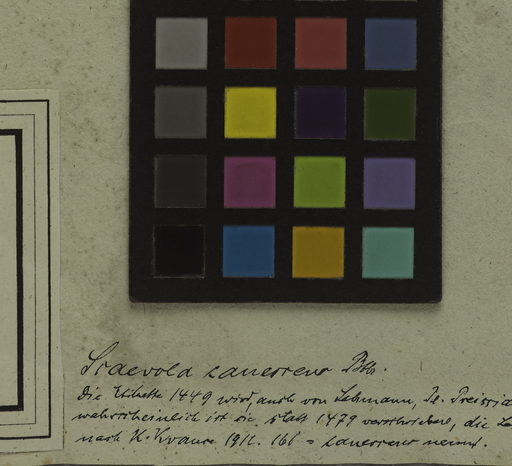 Scaevola canescens Bth.
Die Etikette 1449 wird, auch von Lehmann, Pl. Preissia
wahrscheinlich ist sie statt 1479 verschrieben, die
nach K. Krause 1912. 166 = canescens nennt.